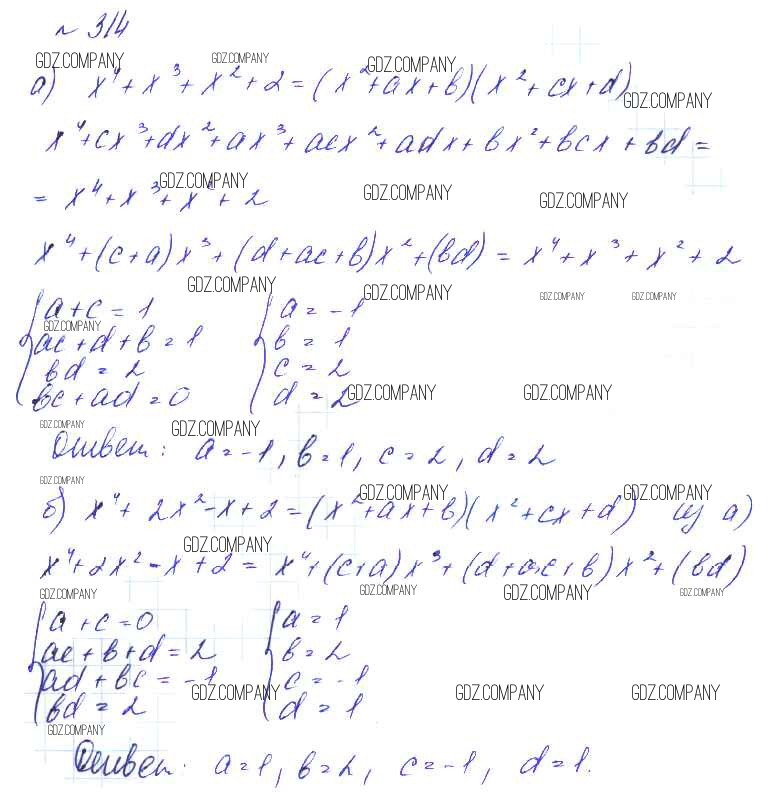 № 314
GDZ.COMPANY GDZ.COMPANY GDZ.COMPANY
а) x⁴+x³+x²+2=(x²+ax+в)(x²+cx+d)
GDZ.COMPANY
x⁴+cx³+dx²+ax³+acx²+adx+вx²+вcx+вd=
= x⁴+x³+x²+2
GDZ.COMPANY GDZ.COMPANY GDZ.COMPANY
x⁴+(c+a)x³+(d+ac+в)x²+(вd) = x⁴+x³+x²+2
GDZ.COMPANY GDZ.COMPANY GDZ.COMPANY GDZ.COMPANY
a+c=1 a=-1
GDZ.COMPANY
ac+d+в=1 в=1
вd=2 c=2
вc+ad=0 d=2
GDZ.COMPANY GDZ.COMPANY
GDZ.COMPANY GDZ.COMPANY
Ответ: a=-1, в=1, c=2, d=2
GDZ.COMPANY GDZ.COMPANY GDZ.COMPANY
б) x⁴+2x²-x+2=(x²+ax+в)(x²+cx+d) из а)
GDZ.COMPANY
x⁴+2x²-x+2= x⁴+(c+a)x³+(d+ac+в)x²+(вd)
GDZ.COMPANY GDZ.COMPANY GDZ.COMPANY GDZ.COMPANY
a+c=0 a=1
ac+в+d=2 в=2
ad+вc=-1 c=-1
GDZ.COMPANY GDZ.COMPANY GDZ.COMPANY
вd=2 d=1
GDZ.COMPANY
Ответ: a=1, в=2, c=-1, d=1.